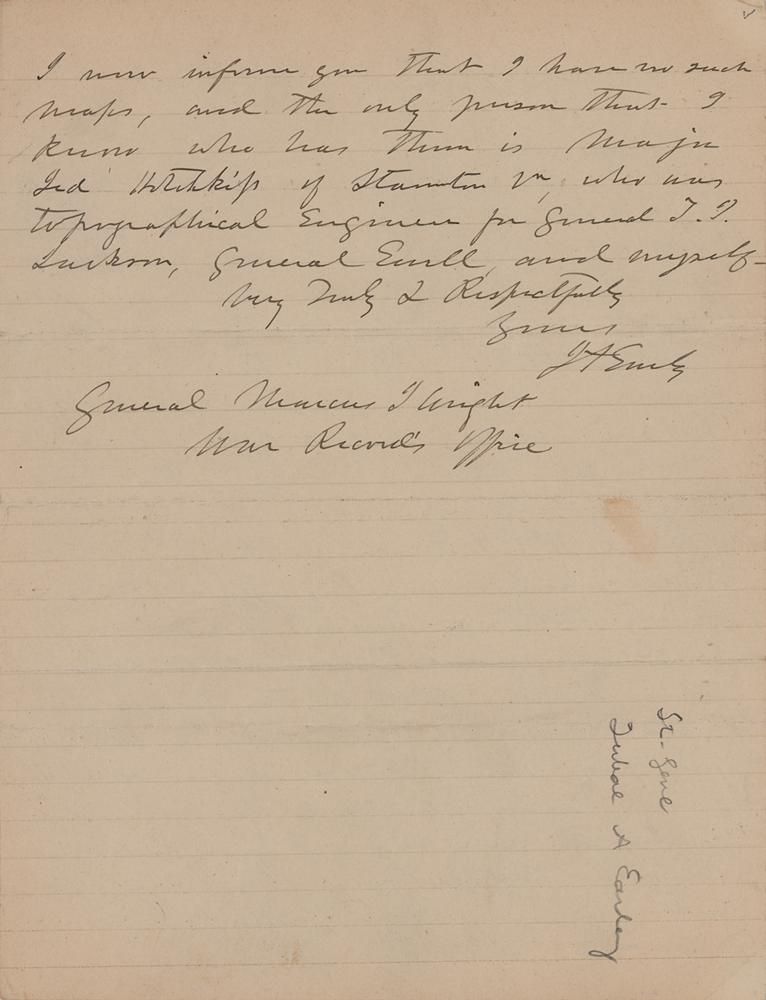 I now inform you that I have no such
maps, and the only person that I
know who has them is Major
Jed Hotchkiss of Staunton Va, who was
topographical Engineer for General T. J.
Jackson, General Ewell, and myself—
Very Truly & Respectfully
Yours
J A Early
General Marcus J Wright
War Records Office
Lt. Genl
Jubal A Earley